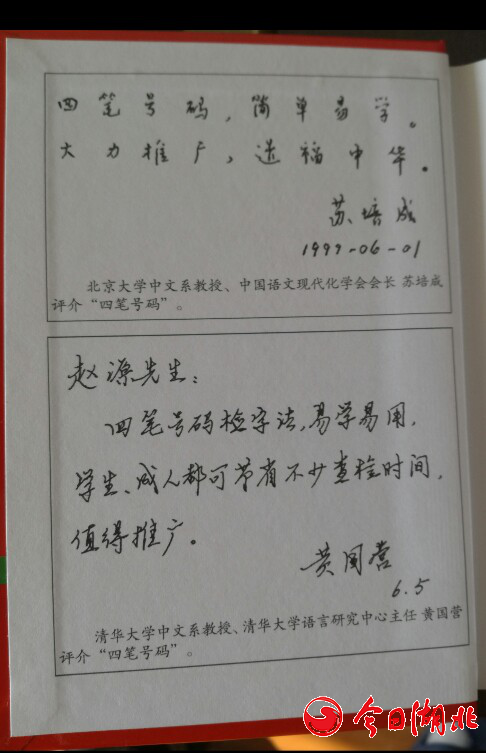 四笔号码，简单易学。
大力推广，造福中华。
苏培成
1999-06-01
北京大学中文系教授、中国语文现代化学会会长 苏培成
评介“四笔号码”。
赵源先生：
四笔号码检字法，易学易用，
学生、成人都可节省不少查检时间，
值得推广。
黄国营
6.5
清华大学中文系教授、清华大学语言研究中心主任 黄国营
评介“四笔号码”。
今日湖北